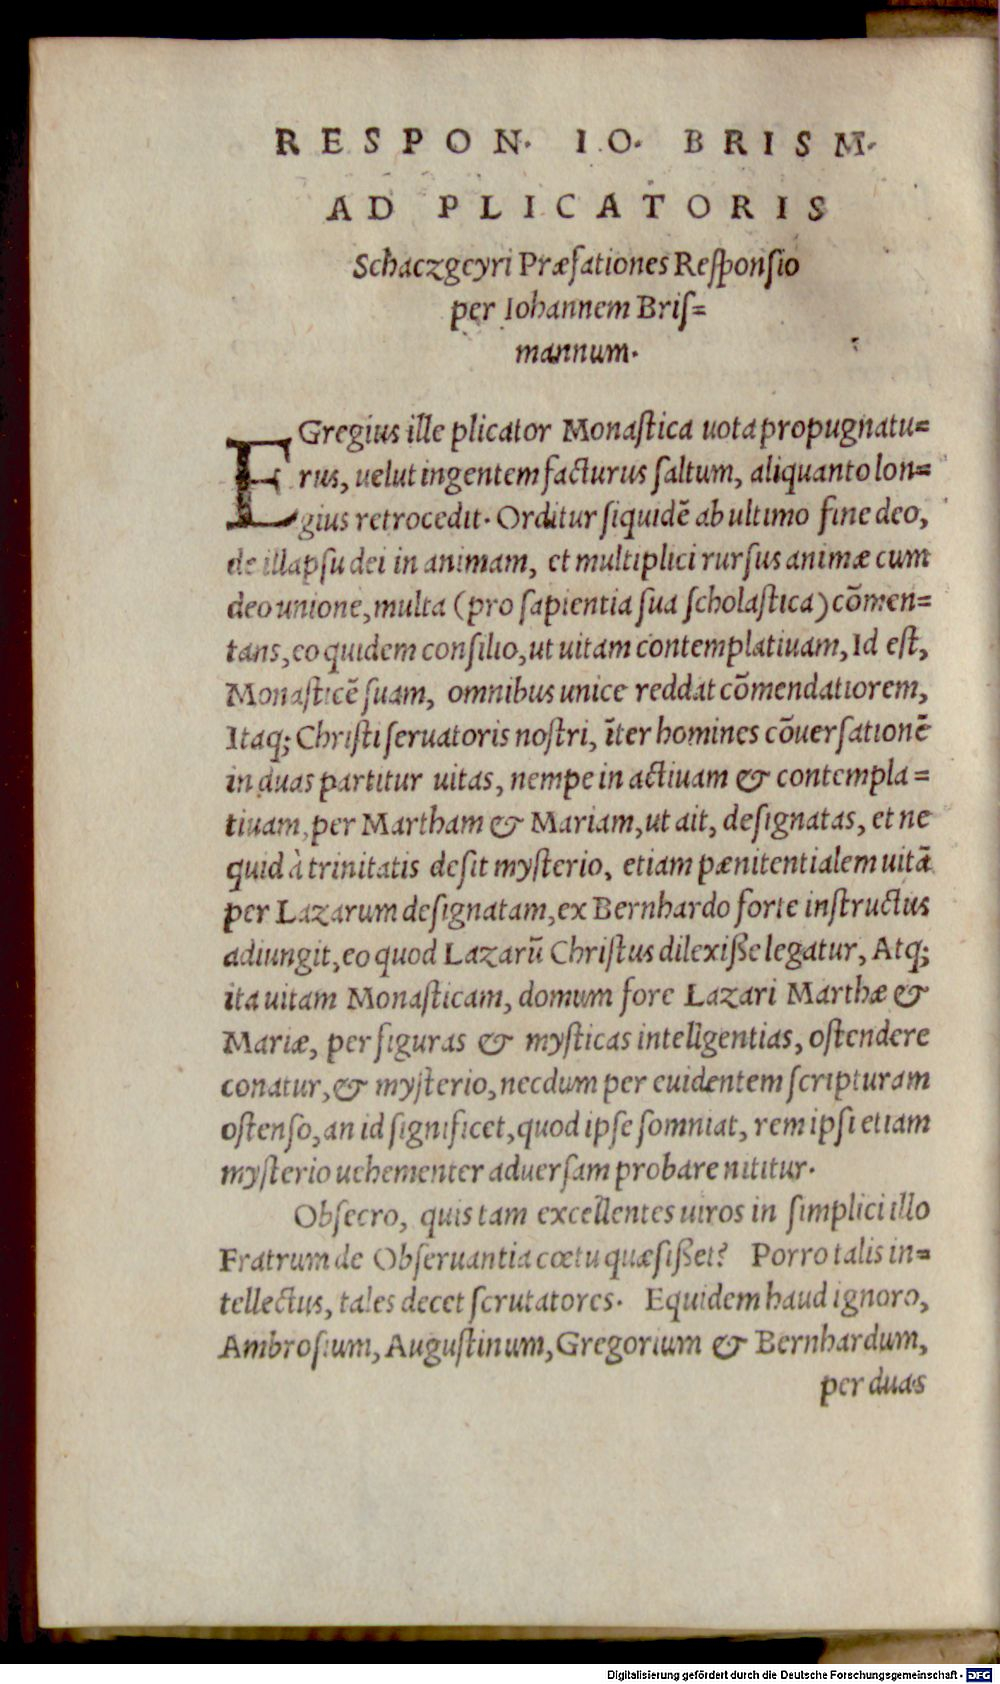 RESPON. IO. BRISM.
AD PLICATORIS
Schaczgeyri Præfationes Responsio
per Iohannem Briſ=
mannum.
EGregius ille plicator Monaſtica uota propugnatu=
rus, uelut ingentem facturus ſaltum, aliquanto lon=
gius retrocedit. Orditur ſiquidē ab ultimo fine deo,
de illapſu dei in animam, et multiplici rurſus animæ cum
deo unione, multa (pro ſapientia ſua ſcholaſtica) cōmen=
tans, eo quidem conſilio, ut uitam contemplatiuam, Id eſt,
Monaſticē ſuam, omnibus unice reddat cōmendatiorem,
Itaq; Chriſti ſeruatoris noſtri, īter homines cōuerſationē
in duas partitur uitas, nempe in actiuam & contempla=
tiuam, per Martham & Mariam, ut ait, deſignatas, et ne
quid à trinitatis deſit myſterio, etiam pænitentialem uitā
per Lazarum deſignatam, ex Bernhardo forte inſtructus
adiungit, eo quod Lazarū Chriſtus dilexiſſe legatur, Atq;
ita uitam Monaſticam, domum fore Lazari Marthæ &
Mariæ, per figuras & myſticas intelligentias, oſtendere
conatur, & myſterio, necdum per euidentem ſcripturam
oſtenſo, an id ſignificet, quod ipſe ſomniat, rem ipſi etiam
myſterio uehementer aduerſam probare nititur.
Obſecro, quis tam excellentes uiros in ſimplici illo
Fratrum de Obſeruantia cœtu quæſiſſet? Porro talis in=
tellectus, tales decet ſcrutatores. Equidem haud ignoro,
Ambroſium, Auguſtinum, Gregorium & Bernhardum,
per duas
Digitalisierung gefördert durch die Deutsche Forschungsgemeinschaft - DFG